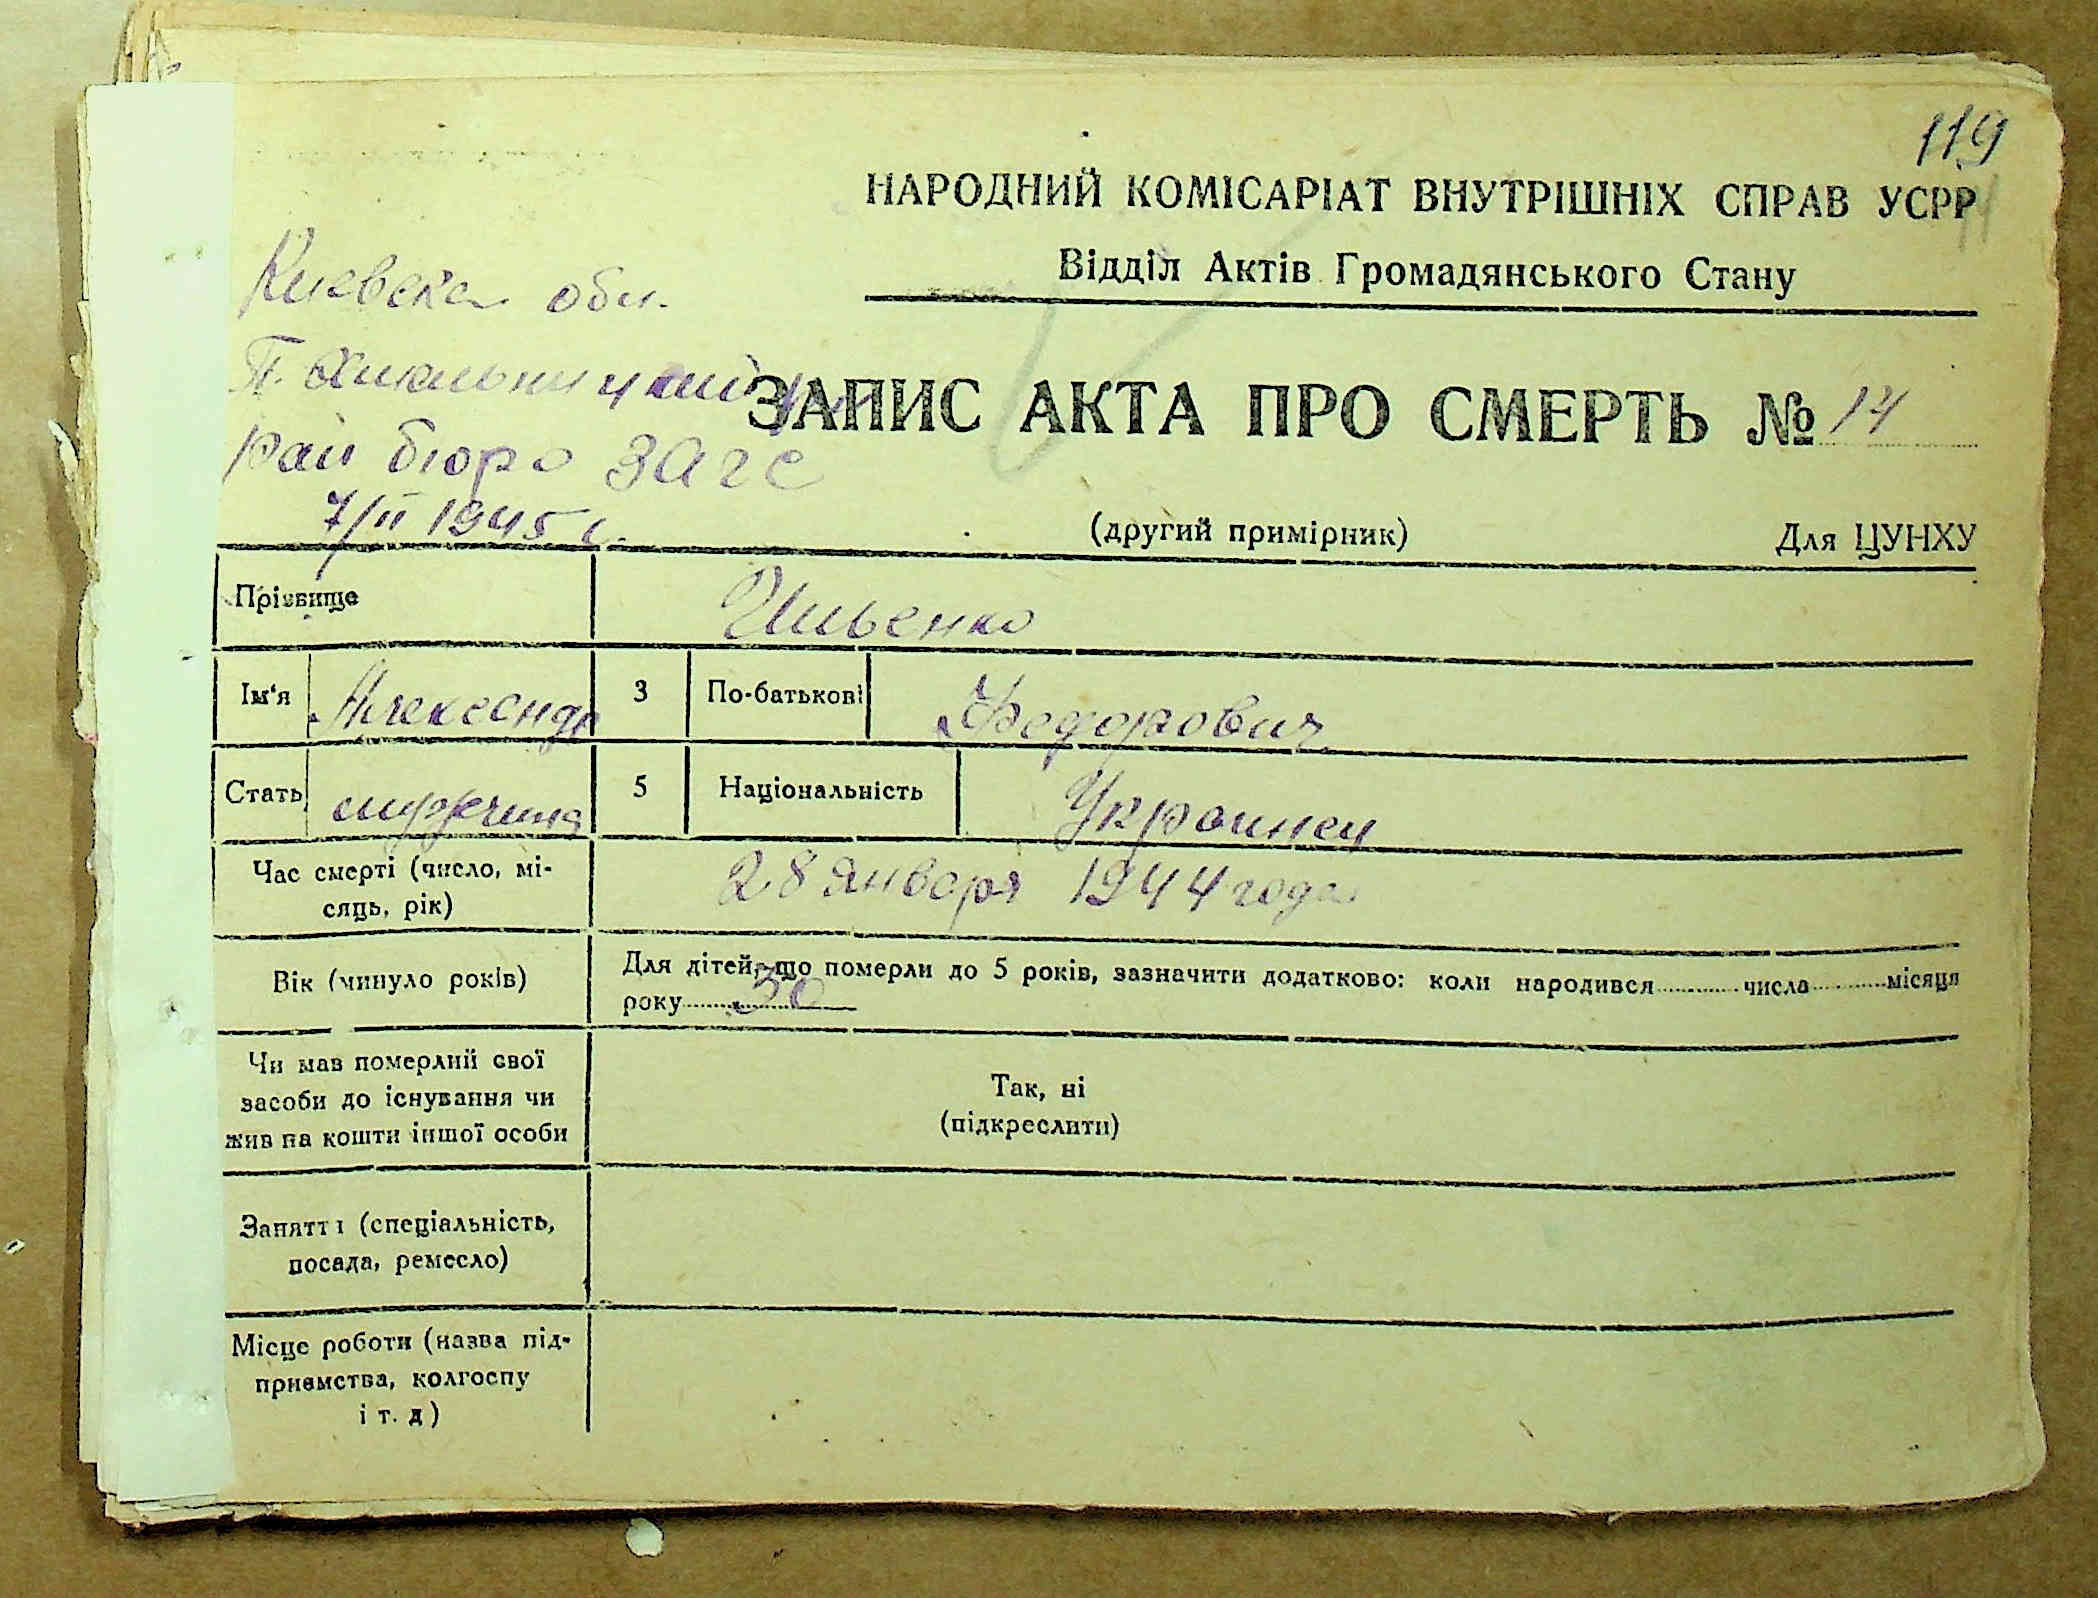 119
НАРОДНИЙ КОМІСАРІАТ ВНУТРІШНІХ СПРАВ УСРР
Відділ Актів Громадянського Стану
Киевска обл.
П. Хмельницкий
рай бюро загс
7/II 1945 г.
ЗАПИС АКТА ПРО СМЕРТЬ № 14
(другий примірник)
Для ЦУНХУ
Прізвище Ильенко
Ім'я Александр 3 По-батькові Федорович
Стать мужчина 5 Національність Украинец
Час смерті (число, мі-
сяць, рік) 28 января 1944 года
Вік (минуло років) Для дітей, що померли до 5 років, зазначити додатково: коли народився числа місяця
року 30
Чи мав померлий свої
засоби до існування чи
жив на кошти іншої особи
Так, ні
(підкреслити)
Заняття (спеціальність,
посада, ремесло)
Місце роботи (назва під-
приємства, колгоспу
і т. д)